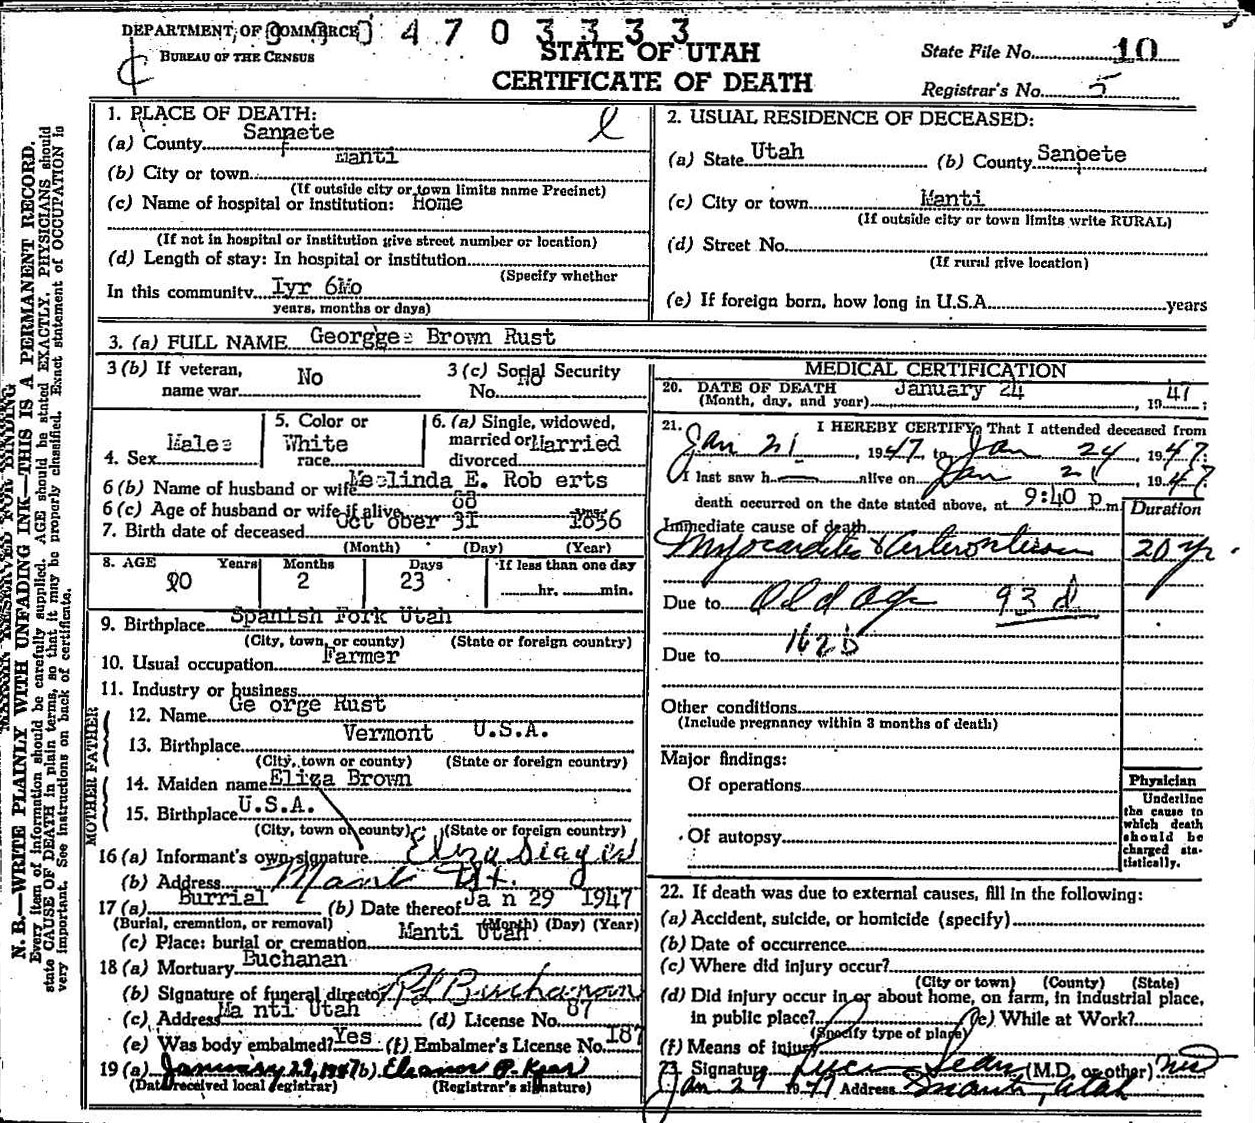 DEPARTMENT OF COMMERCE
BUREAU OF THE CENSUS
4 7 0 3 3 3 3
STATE OF UTAH
CERTIFICATE OF DEATH
State File No. 10
Registrar's No. 5
N. B.—WRITE PLAINLY WITH UNFADING INK—THIS IS A PERMANENT RECORD.
Every item of information should be carefully supplied. AGE should be stated EXACTLY. PHYSICIANS should
state CAUSE OF DEATH in plain terms, so that it may be properly classified. Exact statement of OCCUPATION is
very important. See instructions on back of certificate.
MARGIN RESERVED FOR BINDING
1. PLACE OF DEATH:
(a) County Sanpete
Manti
(b) City or town
(If outside city or town limits name Precinct)
(c) Name of hospital or institution: Home
(If not in hospital or institution give street number or location)
(d) Length of stay: In hospital or institution
(Specify whether
In this community Iyr 6Mo
years, months or days)
2. USUAL RESIDENCE OF DECEASED:
(a) State Utah (b) County Sanpete
(c) City or town Manti
(If outside city or town limits write RURAL)
(d) Street No.
(If rural give location)
(e) If foreign born, how long in U.S.A. years
3. (a) FULL NAME George Brown Rust
3 (b) If veteran,
name war No
3 (c) Social Security
No. No
4. Sex Male
5. Color or
race White
6. (a) Single, widowed,
married or Married
divorced
6 (b) Name of husband or wife Melinda E. Rob erts
6 (c) Age of husband or wife if alive 88 yrs.
7. Birth date of deceased Oct ober 31 1856
(Month) (Day) (Year)
8. AGE Years Months Days If less than one day
90 2 23 hr. min.
9. Birthplace Spanish Fork Utah
(City, town, or county) (State or foreign country)
10. Usual occupation Farmer
11. Industry or business
FATHER
12. Name Ge orge Rust
13. Birthplace Vermont U.S.A.
(City, town or county) (State or foreign country)
MOTHER
14. Maiden name Eliza Brown
15. Birthplace U.S.A.
(City, town or county) (State or foreign country)
16 (a) Informant's own signature Eliza
(b) Address Manti Ut.
17 (a) Burrial (b) Date thereof Ja n 29 1947
(Burial, cremation, or removal) (Month) (Day) (Year)
(c) Place: burial or cremation Manti Utah
18 (a) Mortuary Buchanan
(b) Signature of funeral director Buchanan
(c) Address Ma nti Utah (d) License No. 87
(e) Was body embalmed? Yes (f) Embalmer's License No. 187
19 (a) January 29, 1947 (b) Eleanor P.
(Date received local registrar) (Registrar's signature)
MEDICAL CERTIFICATION
20. DATE OF DEATH January 24
(Month, day, and year) , 19 47 ;
21. I HEREBY CERTIFY, That I attended deceased from
Jan 21 , 1947, to Jan 24 , 1947.
I last saw h alive on Jan 21 , 1947
death occurred on the date stated above, at 9:40 p m.
Duration
Immediate cause of death
Myocarditis & 20 yr.
Due to Old age 93 d
162 b
Due to
Other conditions
(Include pregnancy within 3 months of death)
Major findings:
Of operations
Of autopsy
Physician
Underline
the cause to
which death
should be
charged sta-
tistically.
22. If death was due to external causes, fill in the following:
(a) Accident, suicide, or homicide (specify)
(b) Date of occurrence
(c) Where did injury occur?
(City or town) (County) (State)
(d) Did injury occur in or about home, on farm, in industrial place,
in public place? (e) While at Work?
(Specify type of place)
(f) Means of injury
23. Signature Sears (M.D. or other) MD
Jan 29 1947 Address Manti, Utah